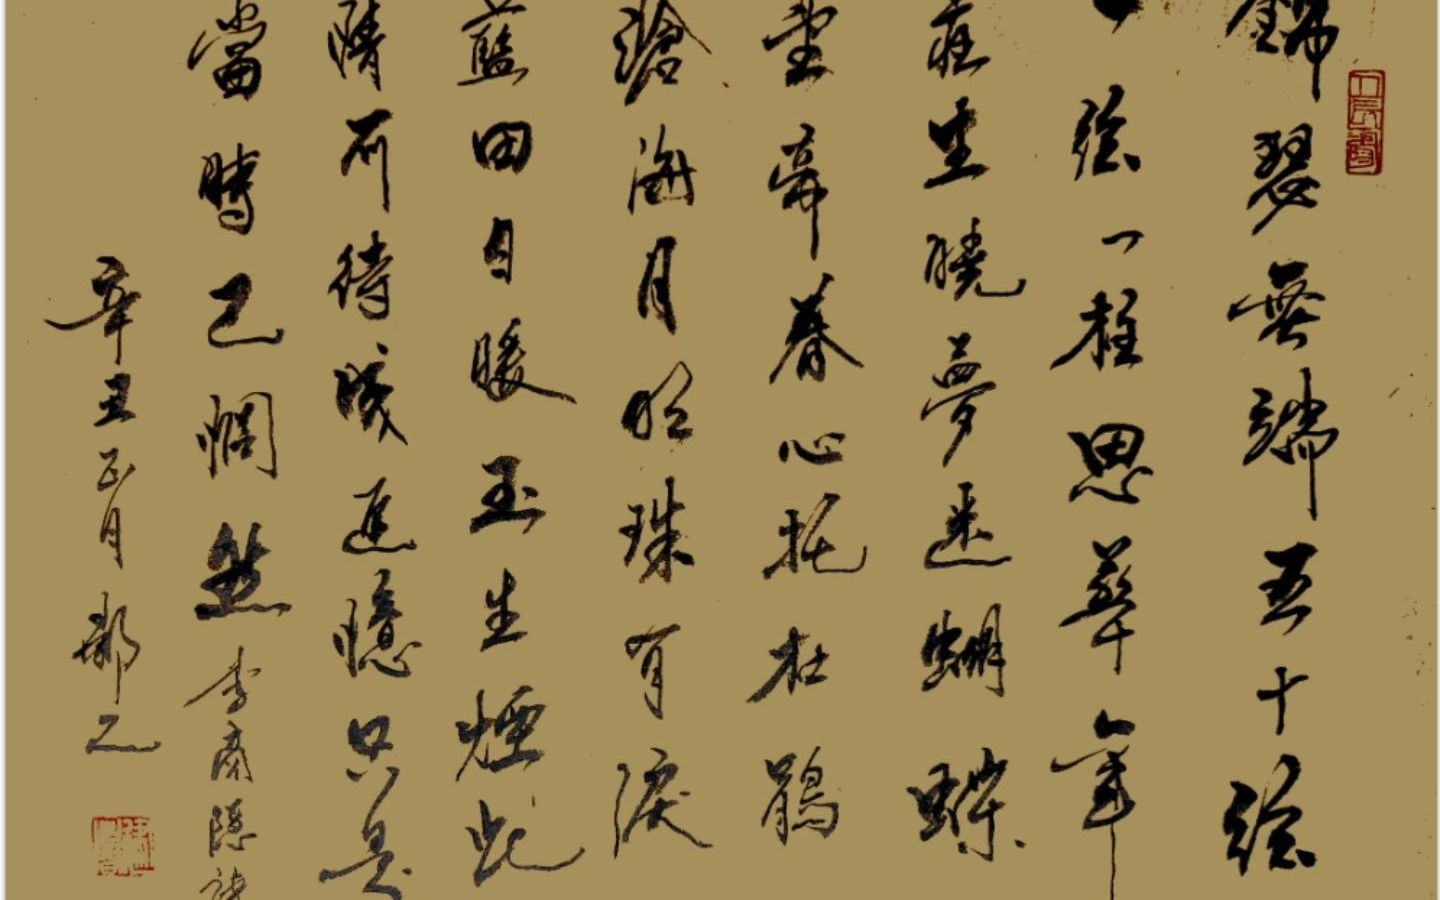 錦瑟無端五十絃
一絃一柱思華年
莊生曉夢迷蝴蝶
望帝春心托杜鵑
滄海月明珠有淚
藍田日暖玉生煙此
情可待成追憶只是
當時已惘然 李商隱詩
辛丑正月